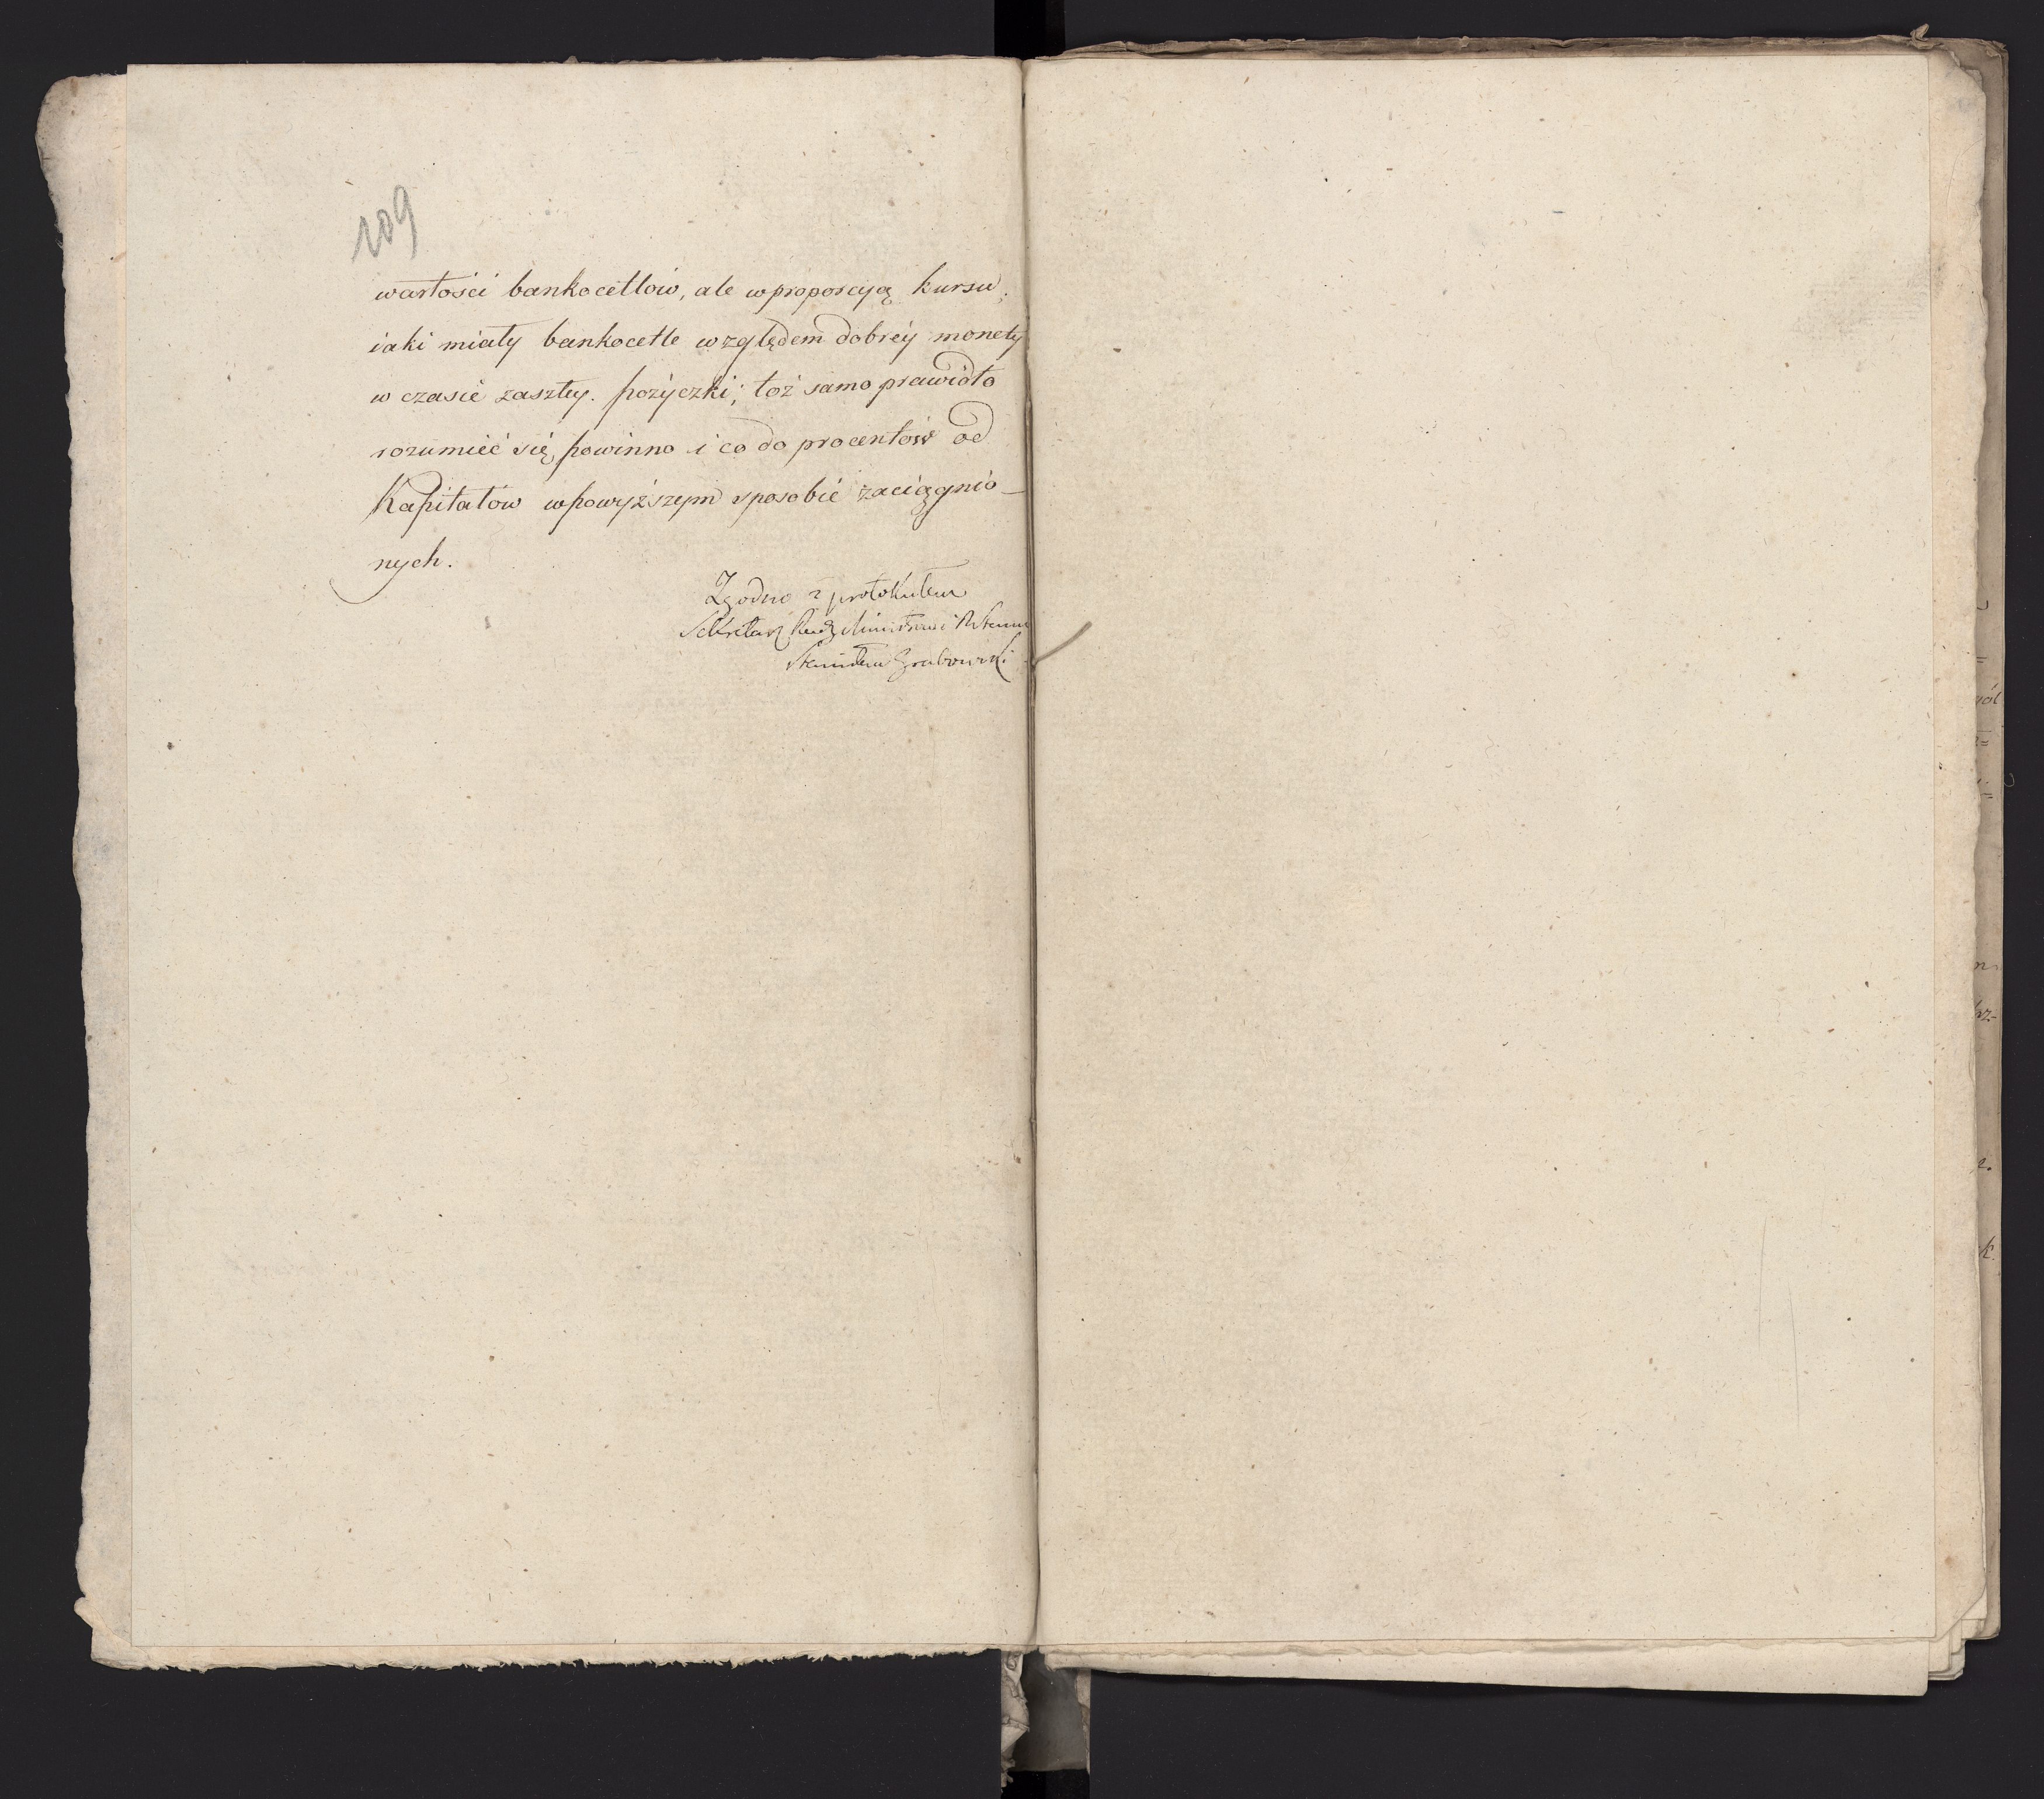 109
wartości bankocetlów, ale wproporcyą kursu,
iaki miały bankocetle względem dobréy monety
w czasie zaszłey. pożyczki; toż samo prawidło
rozumieć się powinno i co do procentów od
Kapitałów wpowyższym sposobie zaciągnio_
nych.
Zgodno z protokułem
Sekretarz Rady Ministrów i Rstanu
Stanisław Grabowski